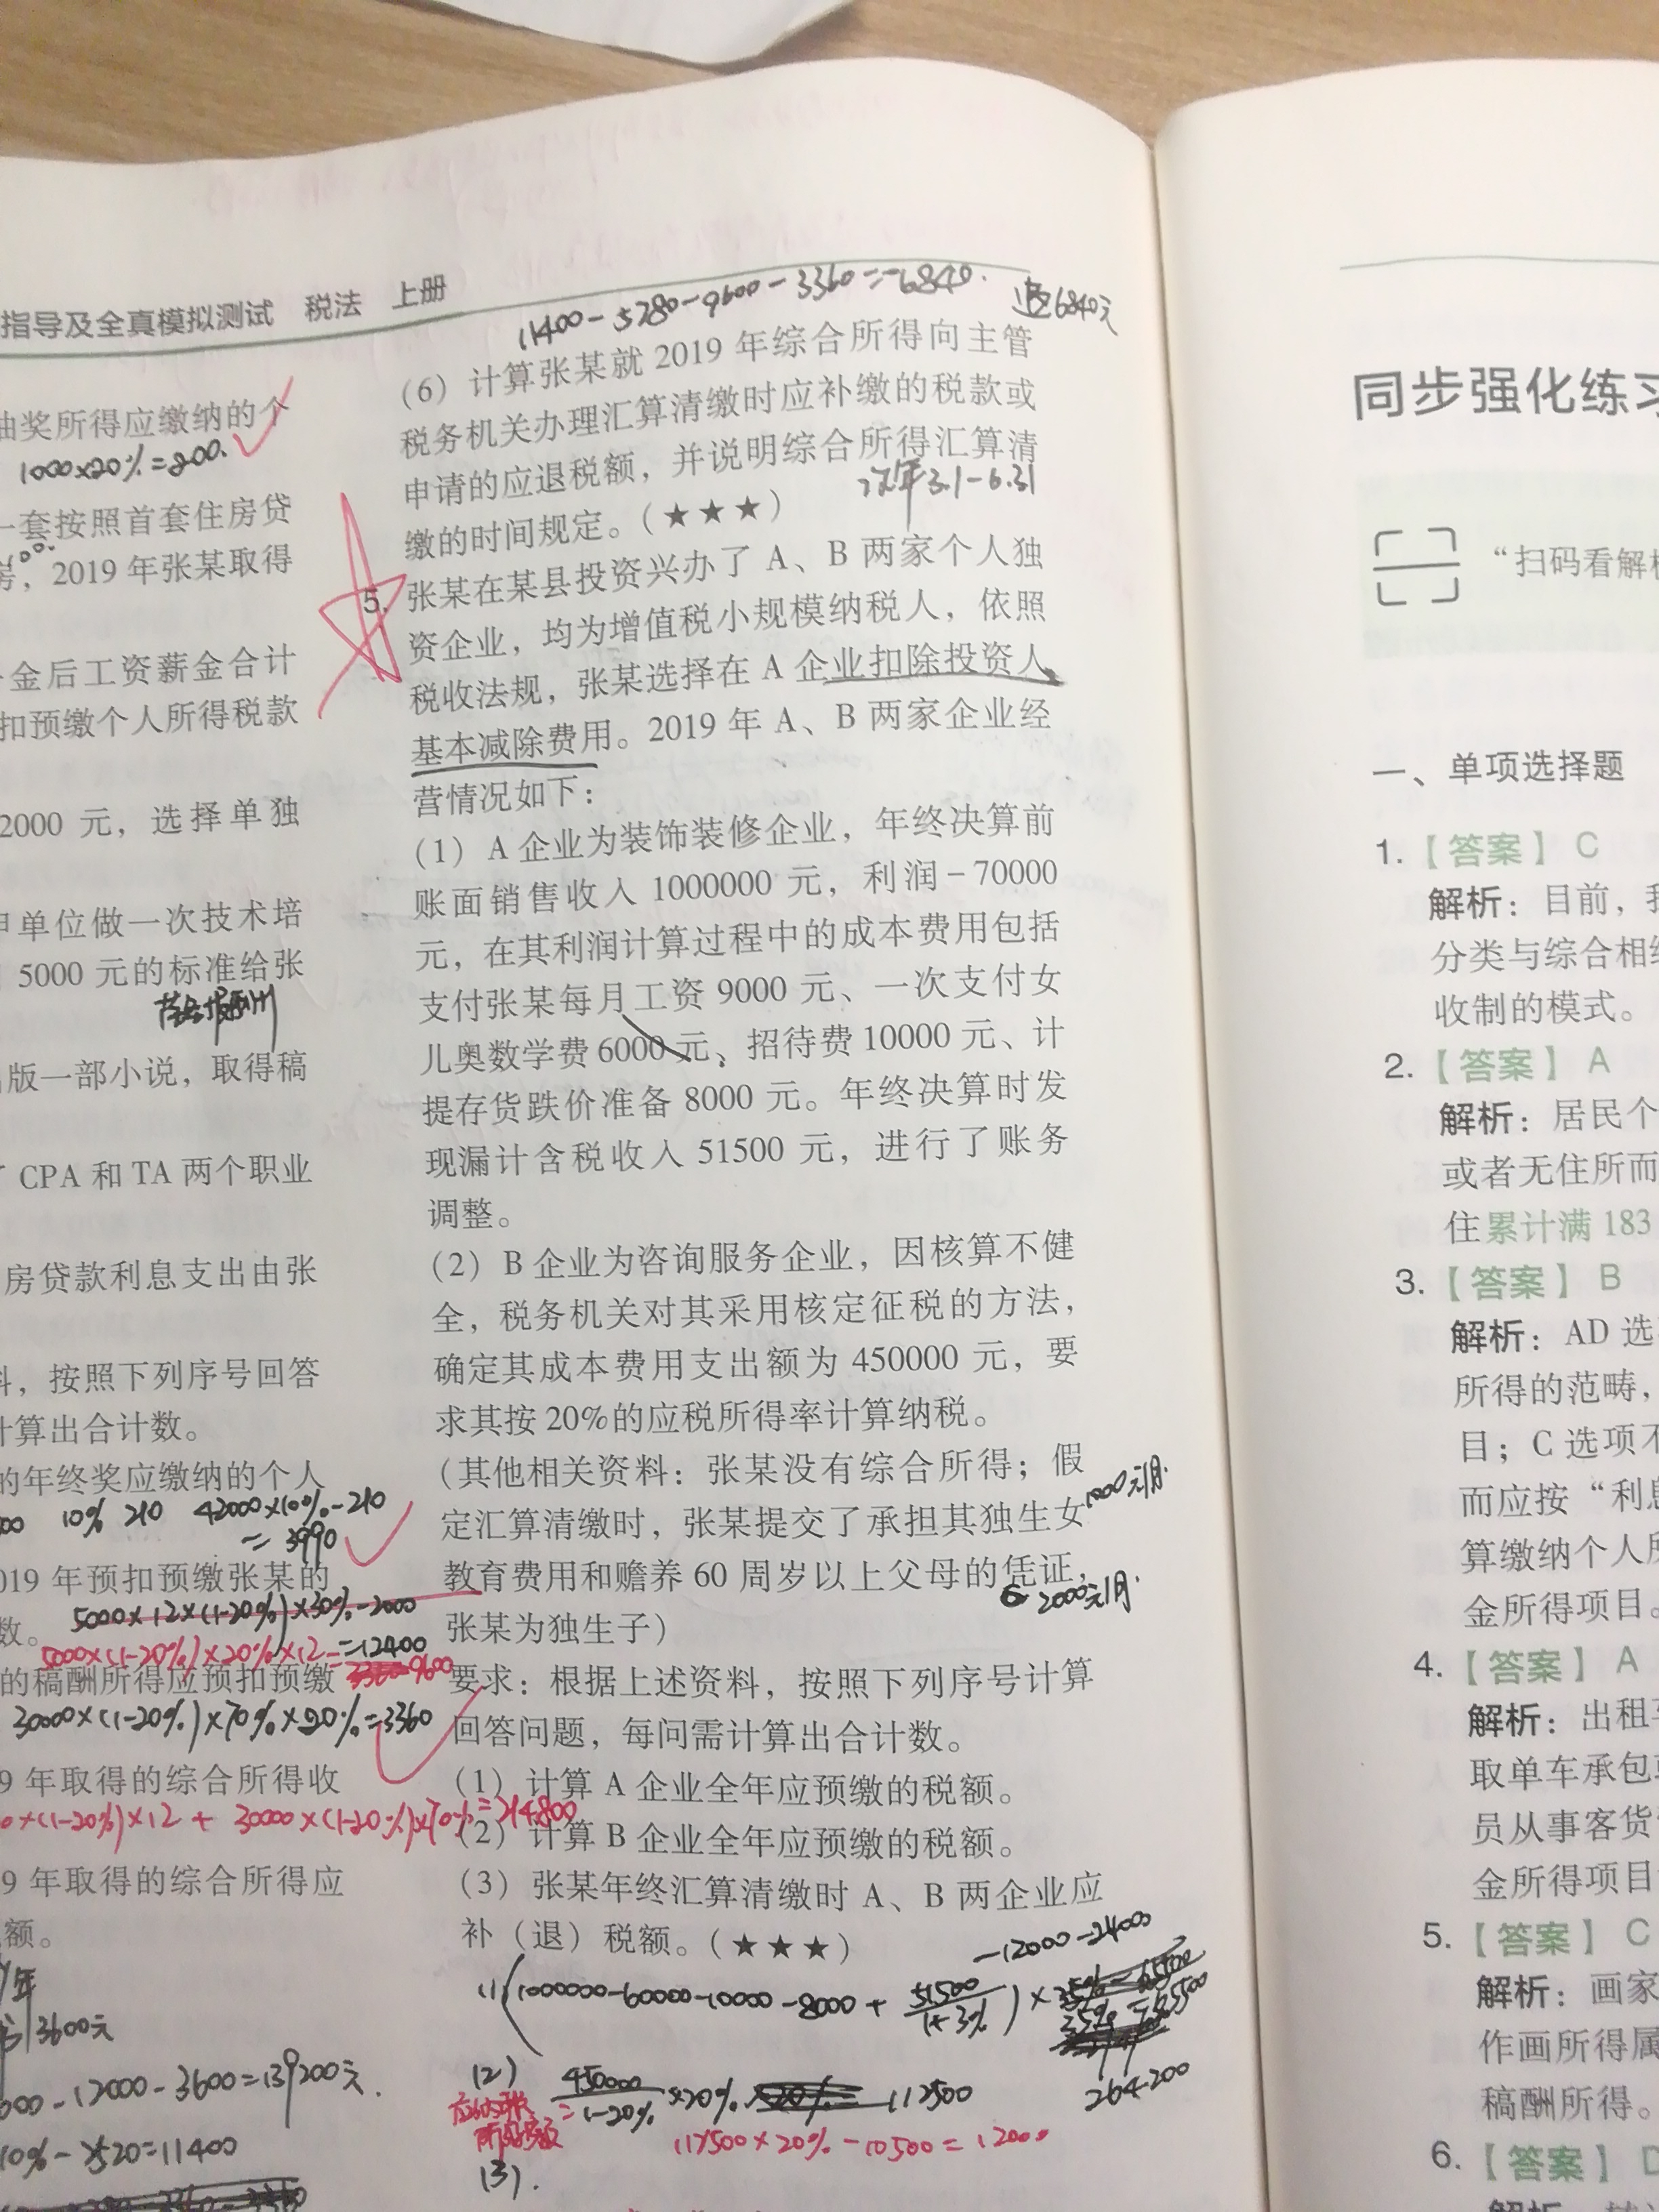 指导及全真模拟测试 税法 上册
抽奖所得应缴纳的个
1000×20%=200.
一套按照首套住房贷
房，2019 年张某取得
金后工资薪金合计
扣预缴个人所得税款
2000 元，选择单独
甲单位做一次技术培
5000 元的标准给张
劳务报酬
出版一部小说，取得稿
了 CPA 和 TA 两个职业
房贷款利息支出由张
料，按照下列序号回答
计算出合计数。
的年终奖应缴纳的个人
10% 210 42000×10%-210
=3990
019 年预扣预缴张某的
5000×12×(1-20%)×30%-2000
数。
=12400
5000×(1-20%)×20%×12=
9600
的稿酬所得应预扣预缴
30000×(1-20%)×70%×20%=3360
9 年取得的综合所得收
0×(1-20%)×12+30000×(1-20%)×70%=214800
9 年取得的综合所得应
额。
年
3600元
000-12000-3600=139200元.
10%-2520=11400
11400-5280-9600-3360=-6840.
退6840元
（6）计算张某就 2019 年综合所得向主管
税务机关办理汇算清缴时应补缴的税款或
申请的应退税额，并说明综合所得汇算清
次年3.1-6.31
缴的时间规定。（★★★）
5. 张某在某县投资兴办了 A、B 两家个人独
资企业，均为增值税小规模纳税人，依照
税收法规，张某选择在 A 企业扣除投资人
基本减除费用。2019 年 A、B 两家企业经
营情况如下：
（1）A 企业为装饰装修企业，年终决算前
账面销售收入 1000000 元，利润－70000
元，在其利润计算过程中的成本费用包括
支付张某每月工资 9000 元、一次支付女
儿奥数学费 6000 元、招待费 10000 元、计
提存货跌价准备 8000 元。年终决算时发
现漏计含税收入 51500 元，进行了账务
调整。
（2）B 企业为咨询服务企业，因核算不健
全，税务机关对其采用核定征税的方法，
确定其成本费用支出额为 450000 元，要
求其按 20%的应税所得率计算纳税。
（其他相关资料：张某没有综合所得；假
1000元/月.
定汇算清缴时，张某提交了承担其独生女
教育费用和赡养 60 周岁以上父母的凭证，
2000元/月.
张某为独生子）
要求：根据上述资料，按照下列序号计算
回答问题，每问需计算出合计数。
（1）计算 A 企业全年应预缴的税额。
（2）计算 B 企业全年应预缴的税额。
（3）张某年终汇算清缴时 A、B 两企业应
补（退）税额。（★★★）
-12000-24000
(1)(1000000-60000-10000-8000+51500/(1+3%))×
35%-65500
264200
(2) 450000/(1-20%)×20%=112500
应纳税所得额=
112500×20%-10500=12000
(3).
同步强化练习
“扫码看解析
一、单项选择题
1.【答案】C
解析：目前，我
分类与综合相结
收制的模式。
2.【答案】A
解析：居民个
或者无住所而
住累计满 183
3.【答案】B
解析：AD 选
所得的范畴，
目；C 选项不
而应按“利息
算缴纳个人所
金所得项目。
4.【答案】A
解析：出租车
取单车承包或
员从事客货
金所得项目
5.【答案】C
解析：画家
作画所得属
稿酬所得。
6.【答案】D